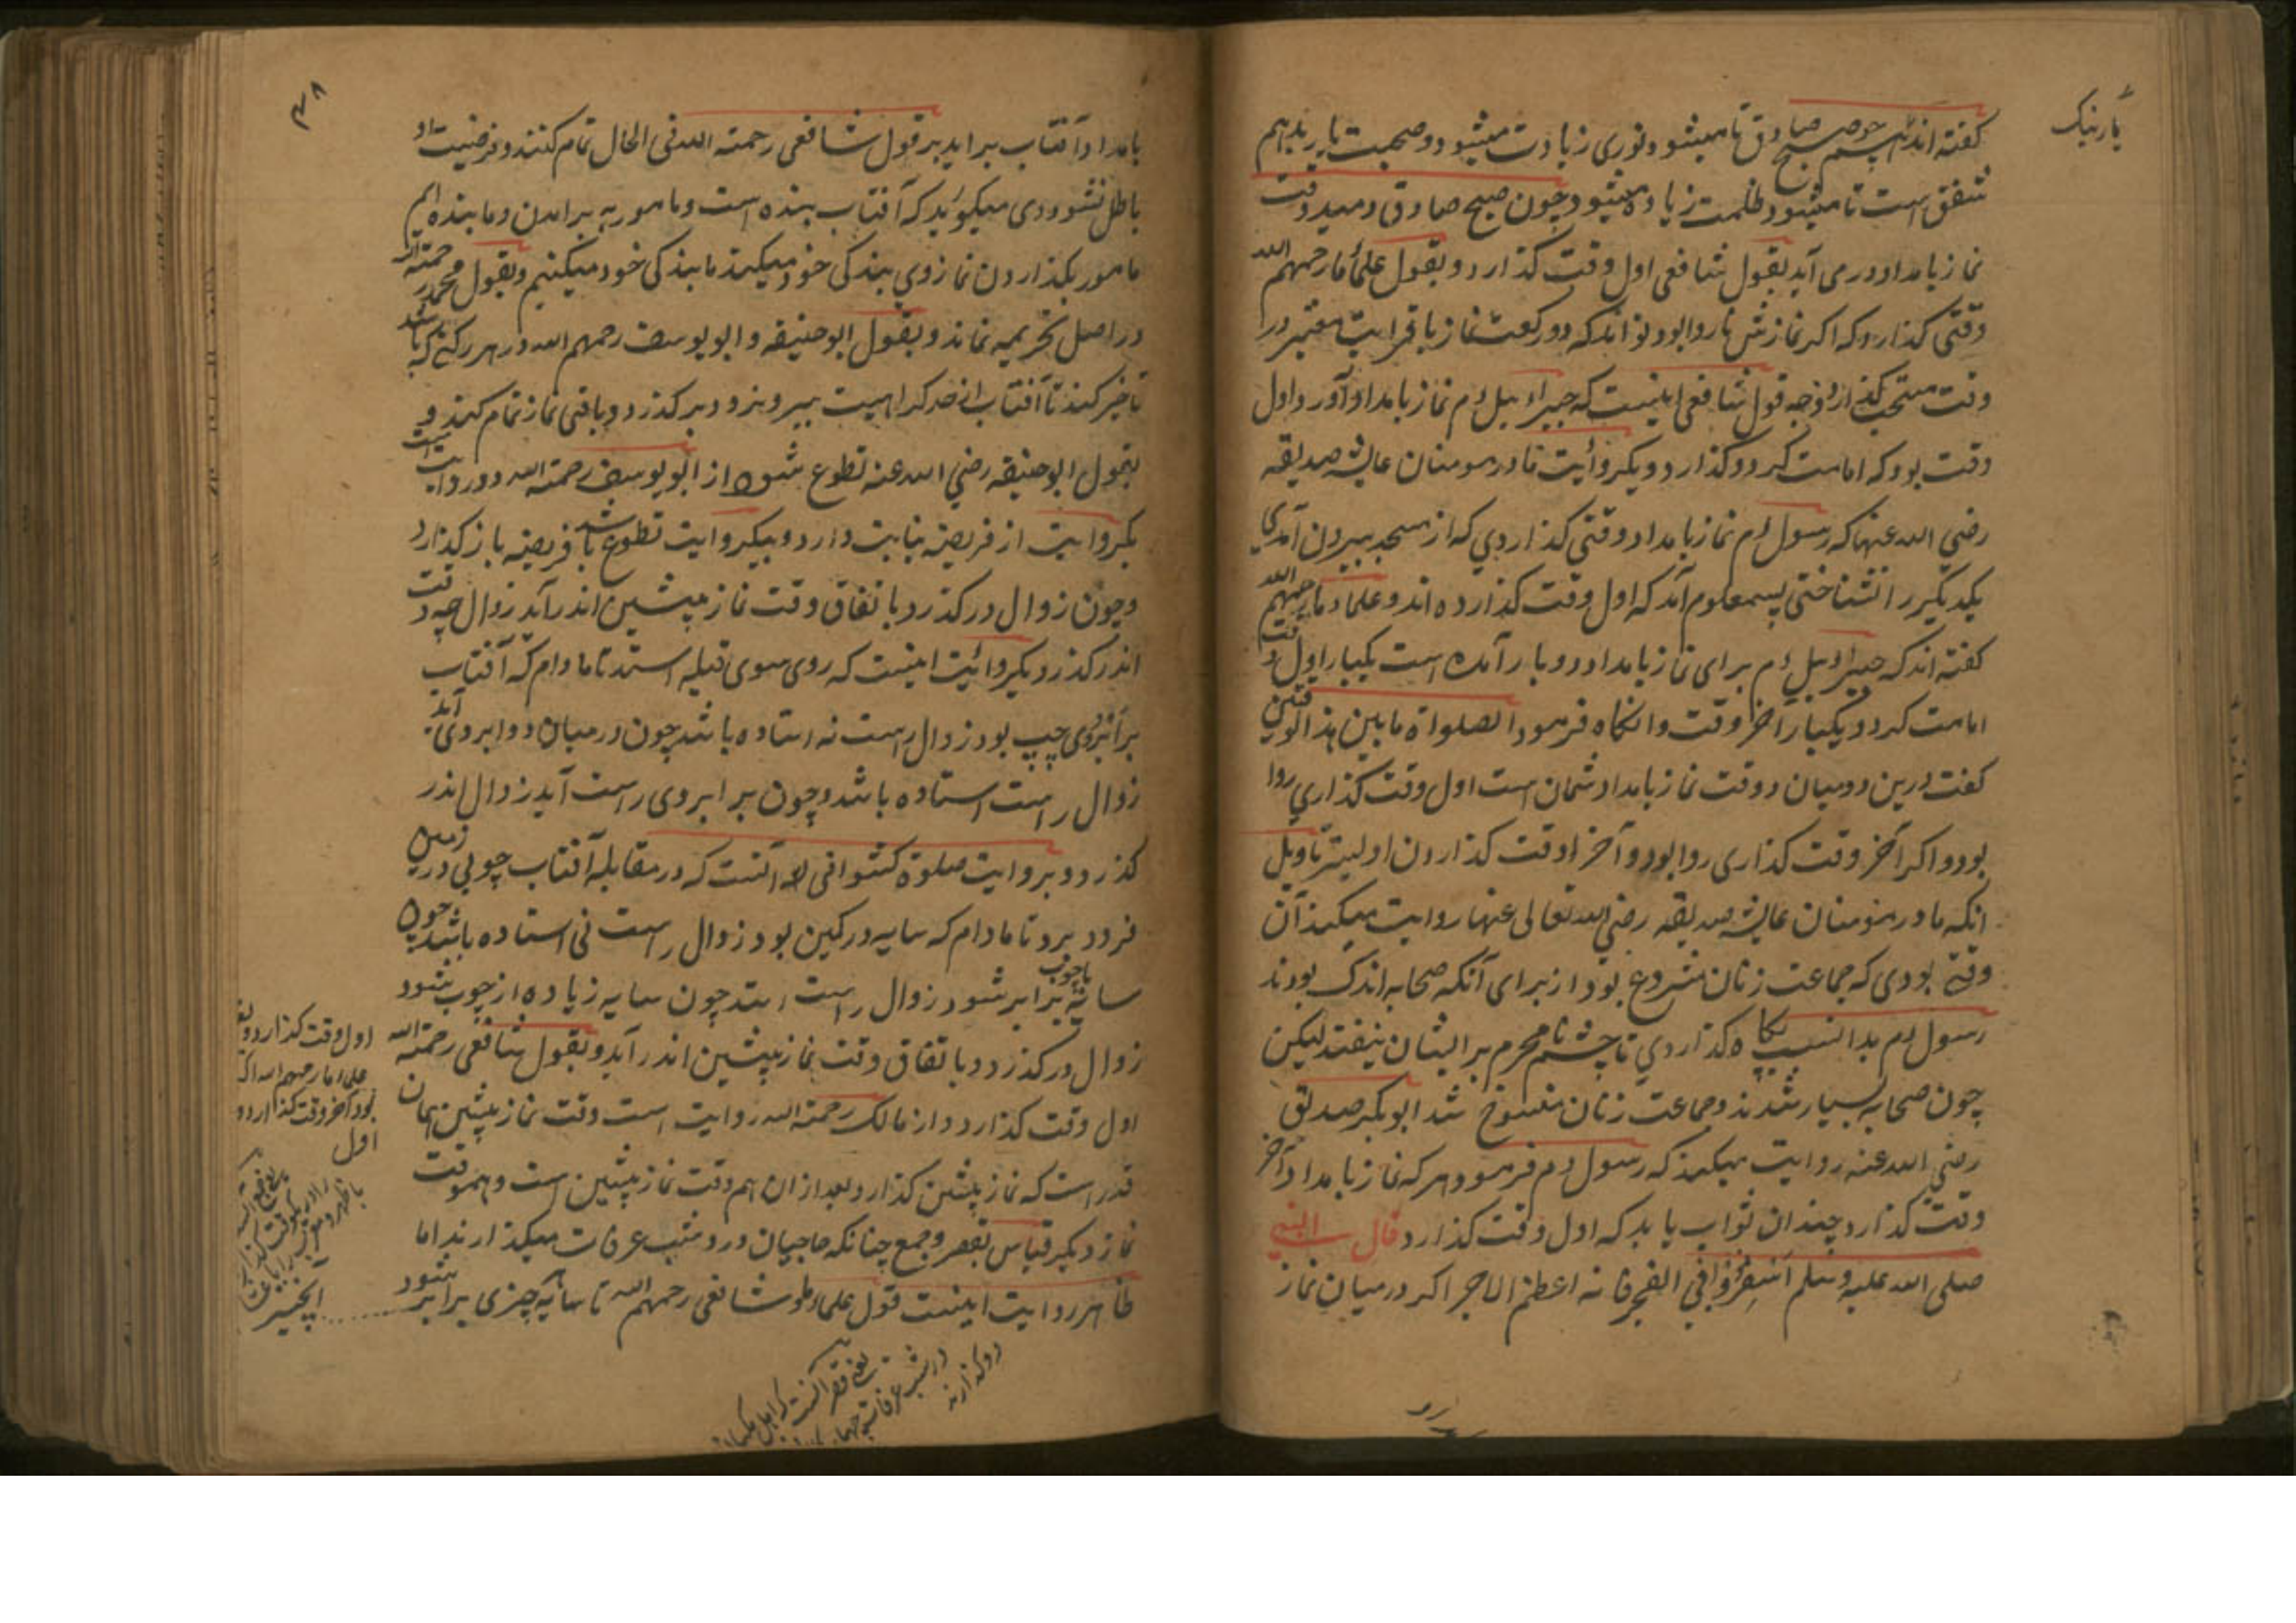 باریک
گفته اند چشم چو صبح صادق تا میشود و نوری زیادت میشود و صحبت با
شفق است تا میشود ظلمت زیاده میشود و چون صبح صادق دمید وقت
نماز بامداد در می آید بقول شافعی اول وقت گذارد و بقول علماء ما رحمهم الله
وقتی گذارد که اگر نمازش ناروا بود تواند که دو رکعت نماز با قراءیت معتبر در
وقت مستحب گذارد وجه قول شافعی اینست که جبراءیل ءم نماز بامداد آورد اول
وقت بود که امامت کرد و گذارد و دیگر روائیت مادر مومنان عایشه صدیقه
رضی الله عنها که رسول ءم نماز بامداد وقتی گذاردی که از مسجد بیرون آمدی
یکدیگر را نشناختی پس معلوم آمد که اول وقت گذارده اند و علماء ما رحمهم الله
گفته اند که جبراءیل ءم برای نماز بامداد دو بار آمده است یکبار اول وقت
امامت کرد و یکبار آخر وقت وانگاه فرمود الصلواة مابین هذا الوقتین
گفت درین دو میان دو وقت نماز بامداد شمان است اول وقت گذاری روا
بود و اگر آخر وقت گذاری روا بود و آخر وقت گذاردن اولیتر تاویل
انکه مادر مومنان عایشه صدیقه رضی الله تعالی عنها روایت میکند آن
وقتی بودی که جماعت زنان مشروع بود از برای آنکه صحابه اندک بودند
رسول ءم بدانسبب پگاه گذاردی تا چشم نامحرم بر ایشان نیفتد لیکن
چون صحابه بسیار شدند و جماعت زنان منسوخ شد ابوبکر صدیق
رضی الله عنه روایت میکند که رسول ءم فرمود هر که نماز بامداد آخر
وقت گذارد چندان ثواب یابد که اول وقت گذارد قال النبی
صلی الله علیه وسلم اسفروا فی الفجر فانه اعظم الاجر اگر در میان نماز
۳۸
بامداد آفتاب براید بر قول شافعی رحمته الله فی الحال تمام کنند و فرضیت او
باطل نشود وی میگوید که آفتاب بنده است و مامور به برامدن و ما بنده ایم
مامور بگذاردن نماز وی بندگی خود میکند ما بندگی خود میکنیم و بقول محمد رحمته الله
در اصل تحریمه نماند و بقول ابوحنیفه و ابویوسف رحمهم الله در هر رکنی که باشد
تاخیر کند تا آفتاب از حد کراهیت بیرون رود و برگذرد و باقی نماز تمام کند و
بقول ابوحنیفه رضی الله عنه تطوع شود و از ابویوسف رحمته الله دو روایت است
یکروایت از فریضه نیابت دارد و بیکروایت تطوع باشد فریضه باز گذارد
و چون زوال در گذرد باتفاق وقت نماز پیشین اندر آید زوال چه وقت
اندر گذرد یکروائیت اینست که روی سوی قبله استد تا مادام که آفتاب
بر ابروی چپ بود زوال راست نه استاده باشد چون در میان دو ابروی آید
زوال راست استاده باشد و چون بر ابروی راست آید زوال اندر
گذرد و بروایت صلوة آنست که در مقابله آفتاب چوبی در زمین
فرود برد تا مادام که سایه در کمین بود زوال راست نی استاده باشد چون
سایه با چوب برابر شود زوال راست استد چون سایه زیاده از چوب شود
زوال در گذرد و باتفاق وقت نماز پیشین اندر آید و بقول شافعی رحمته الله
اول وقت گذارد و از مالک رحمته الله روایت است وقت نماز پیشین همان
قدر است که نماز پیشین گذارد و بعد از ان هم وقت نماز پیشین است و هم وقت
نماز دیگر قیاس بقصر و جمع چنانکه حاجیان در شب عرفات میگذارند اما
ظاهر روایت اینست قول علماء و شافعی رحمهم الله تا سایه چیزی برابر شود
اول وقت گذارد و بقول
علماء ما رحمهم الله اگر
بود آخر وقت گذارد و
اول